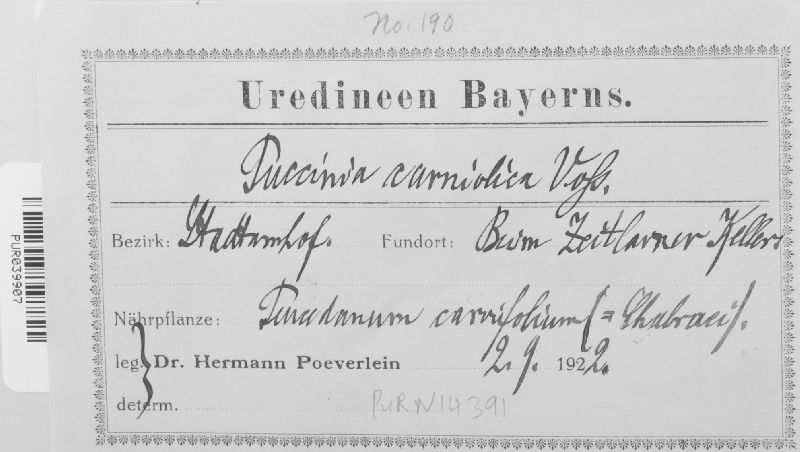 No. 190.
Uredineen Bayerns.
Puccinia carniolica Voß.
Bezirk: Stadtamhof. Fundort: Beim Zeitlarner Keller
Nährpflanze: Peucedanum carvifolium (= Chabraei).
leg. Dr. Hermann Poeverlein 2. 9. 1922.
determ. PUR N14391
PUR039907